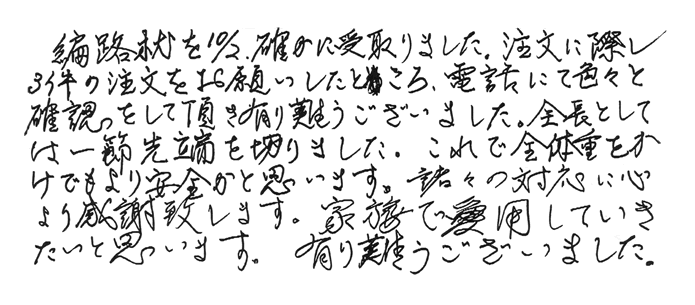 遍路杖を10/2.確かに受取りました。注文に際し
3イ牛の注文をお願いしたところ、電話にて色々と
確認をして頂き有り難うございました。全長として
は一節先端を切りました。これで全体重をか
けてもより安全かと思います。諸々の対応に心
より感謝致します。家族で愛用していき
たいと思います。 有り難うございました。